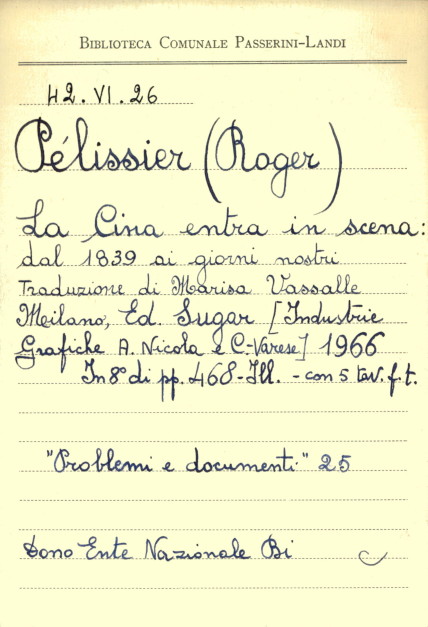 BIBLIOTECA COMUNALE PASSERINI-LANDI
42.VI.26
Pélissier (Roger)
La Cina entra in scena:
dal 1839 ai giorni nostri
Traduzione di Marisa Vassalle
Milano, Ed. Sugar [Industrie
Grafiche A. Nicola e C.-Varese] 1966
In 8° di pp. 468-Ill. - con 5 tav. f.t.
"Problemi e documenti" 25
Dono Ente Nazionale Bi